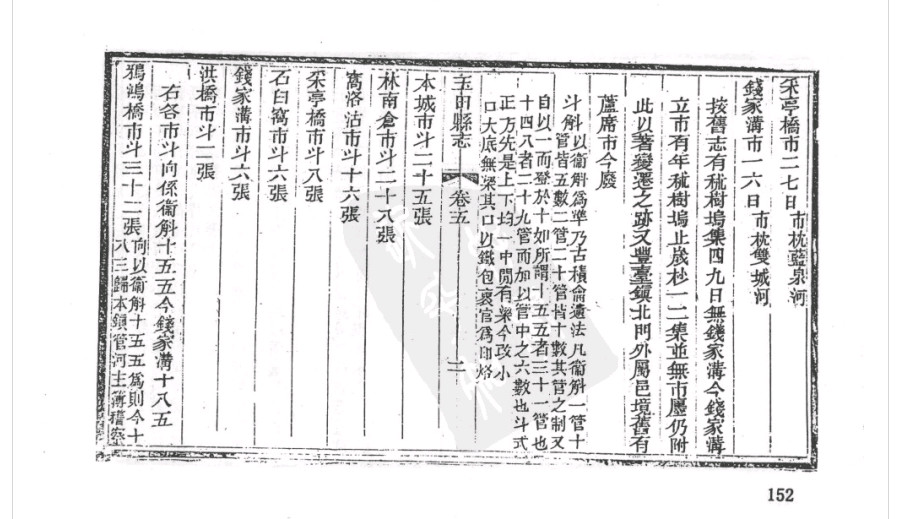 采亭橋市二七日市枕藍泉河
錢家溝市一六日市枕雙城河
按舊志有秫樹塢集四九日無錢家溝今錢家溝
立市有年秫樹塢止歲杪一二集並無市廛仍附
此以著變遷之跡又豐臺鎮北門外屬邑境舊有
蘆席市今廢
斗斛以衞斛為準乃古積侖遺法凡衞斛一管十
管皆五數二管二十管皆十數其管之制又
自以一而登於十如所謂十五五者三十一管也
十四八者二十九管而加以管中之六數也斗式
正方先是上下均一中間有梁今改小
口大底無梁其口以鐵包裹官為印烙
玉田縣志 卷五 二
本城市斗二十五張
林南倉市斗二十八張
窩洛沽市斗十六張
采亭橋市斗八張
石臼窩市斗六張
錢家溝市斗六張
洪橋市斗二張
右各市斗向係衞斛十五五今錢家溝十八五
鴉鴻橋市斗三十二張向以衞斛十五五為則今十
八三歸本鎮管河主簿稽察
152